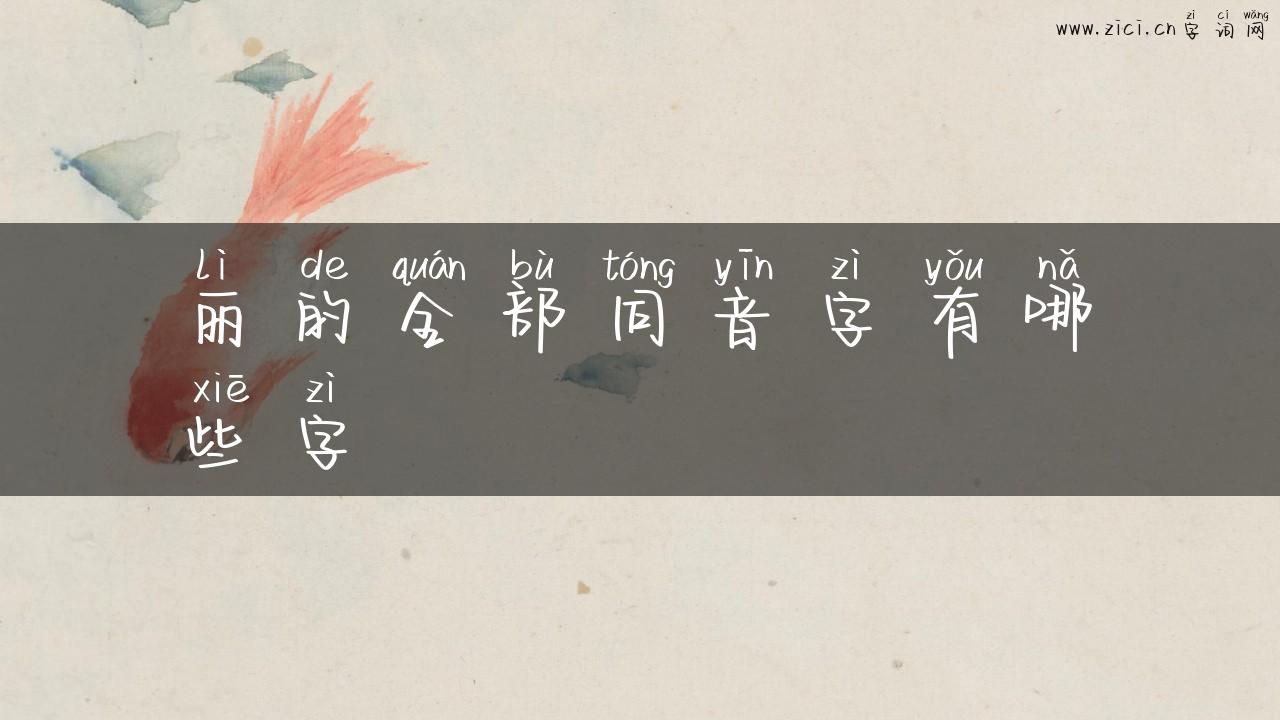 zì cí wǎng
www.zici.cn 字 词 网
lì de quán bù tóng yīn zì yǒu nǎ
丽 的 全 部 同 音 字 有 哪
xiē zì
些 字